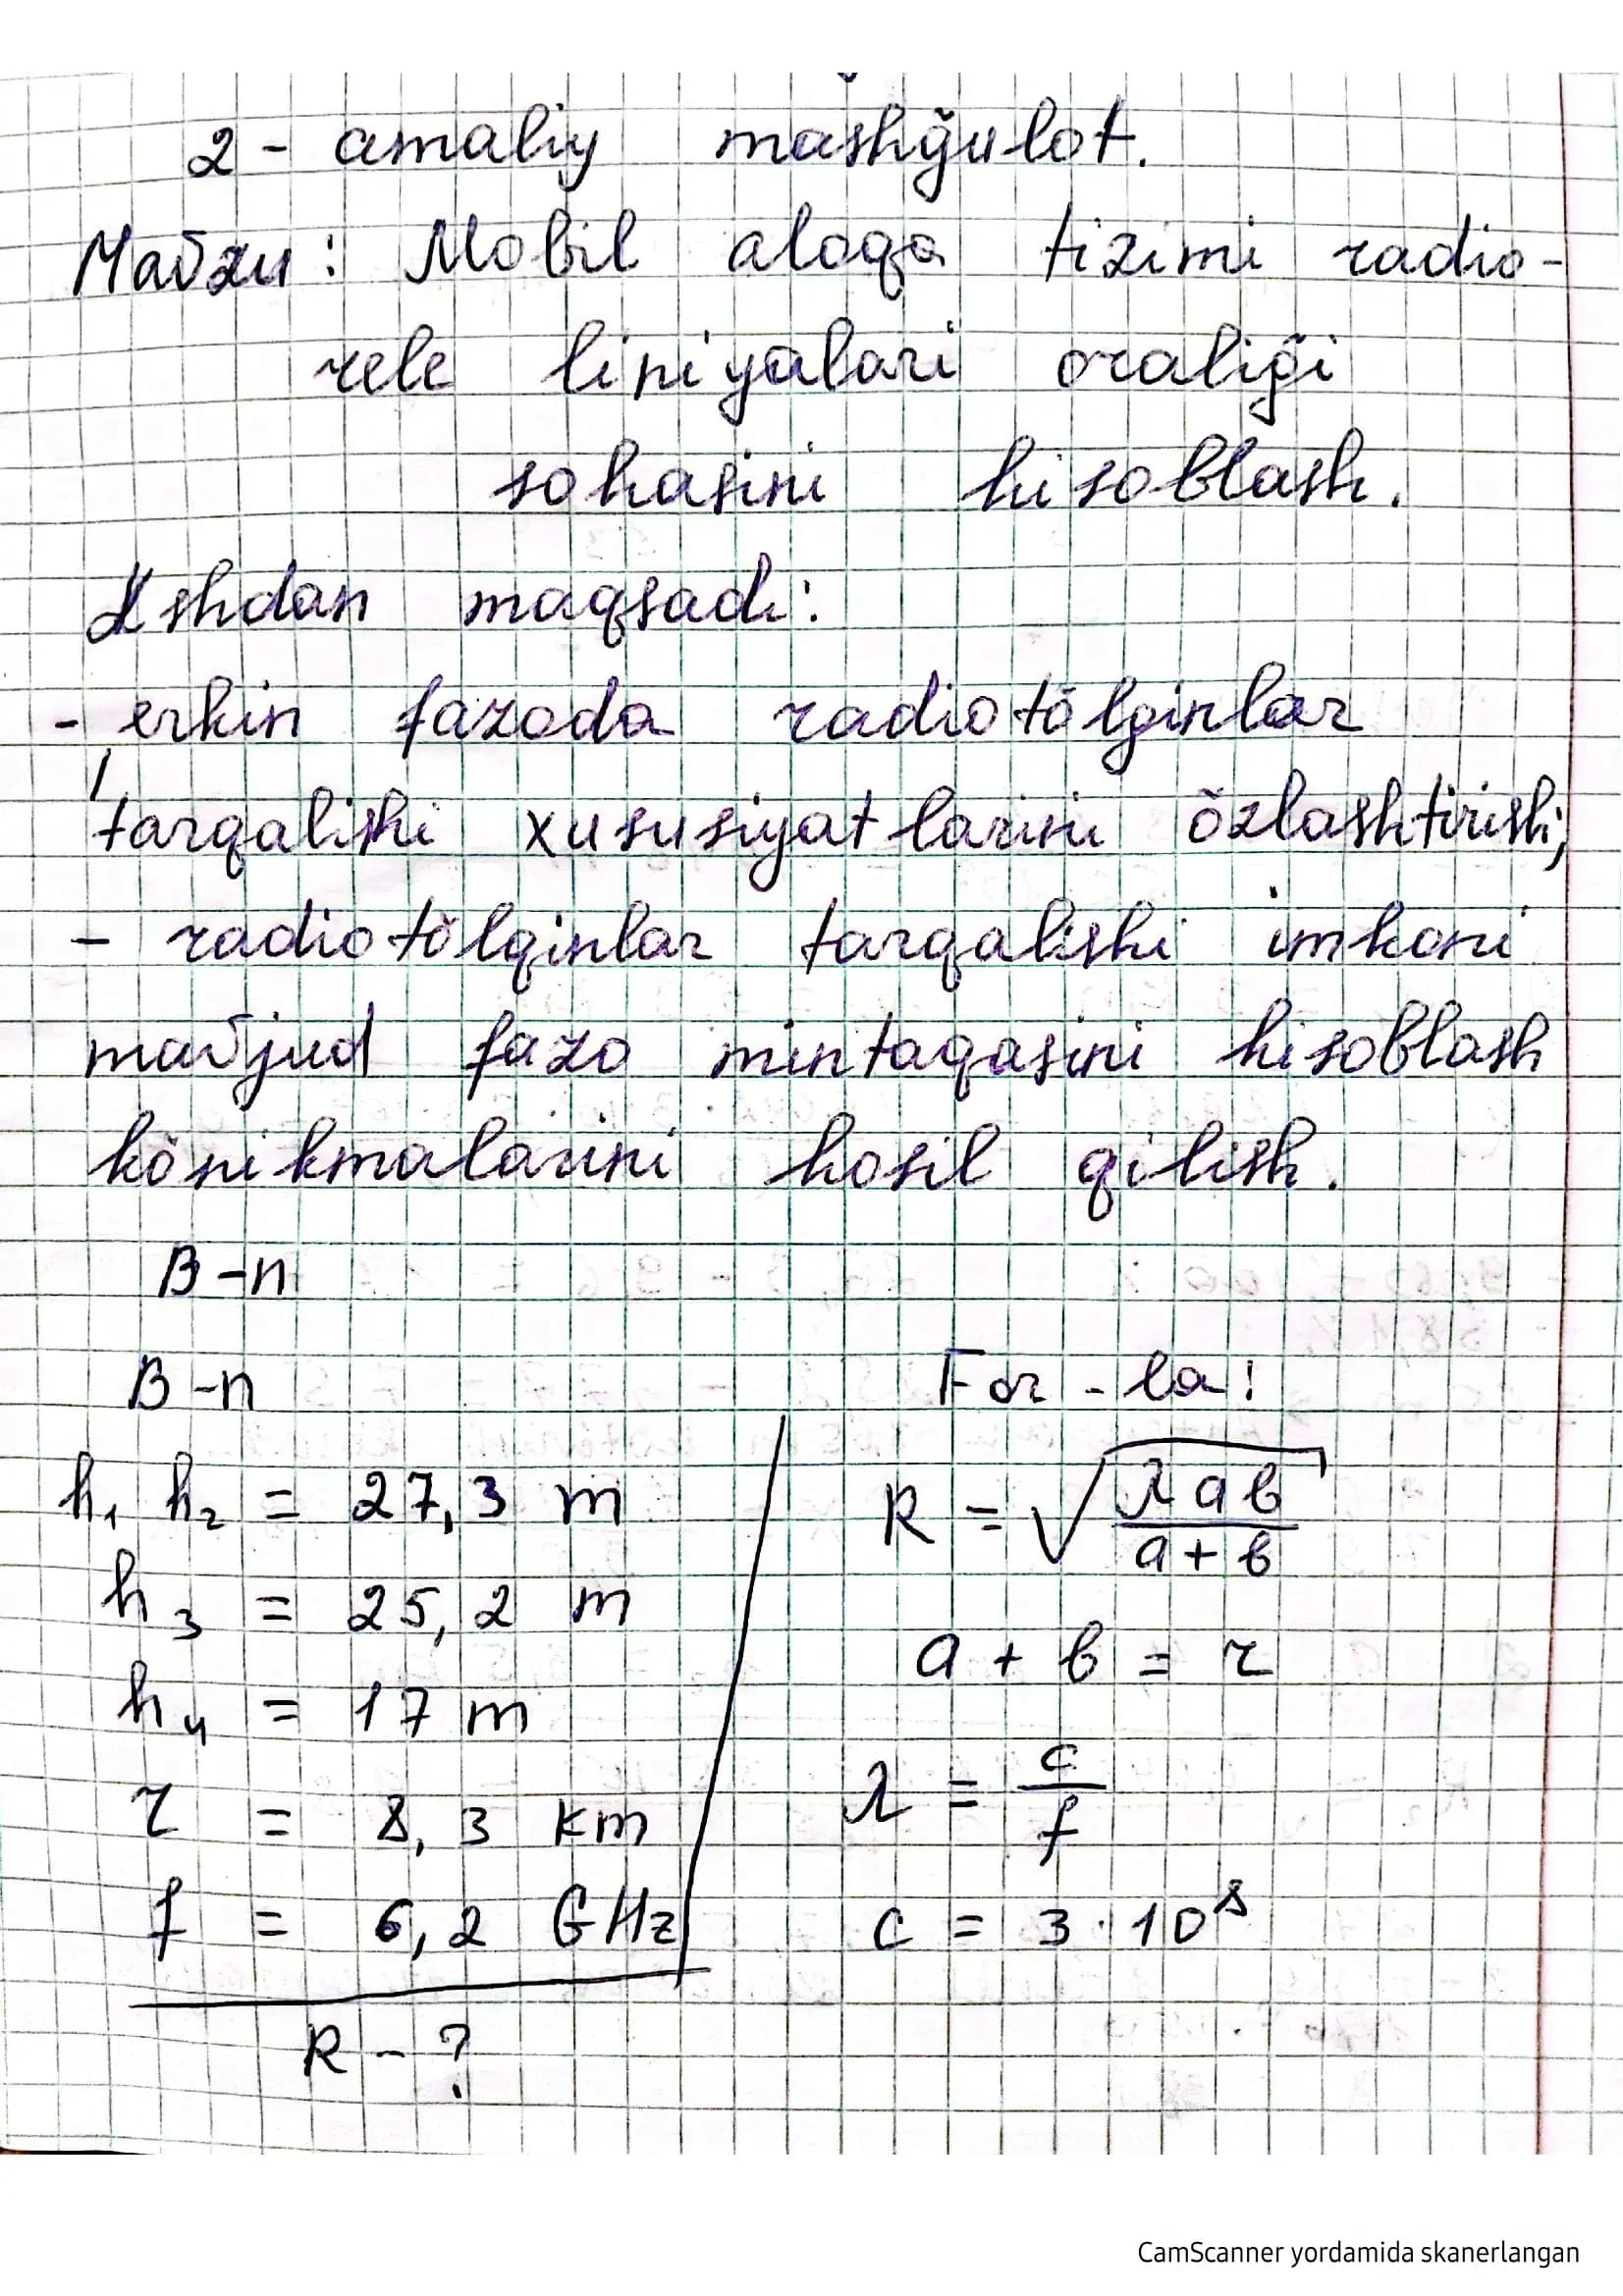 2 - amaliy mashğulot.
Mavzu: Mobil aloqa tizimi radio-
rele liniyalari oraliği
sohasini hisoblash.
Ishdan maqsad:
- erkin fazoda radiotõlqinlar
tarqalishi xususiyatlarini õzlashtirish;
- radiotõlqinlar tarqalishi imkoni
mavjud fazo mintaqasini hisoblash
kõnikmalarini hosil qilish.
B-n
B-n
For-la:
h₁ h₂ = 27,3 m
R = √(λab / a+b)
h₃ = 25,2 m
a + b = r
h₄ = 17 m
λ = c/f
r = 8,3 km
f = 6,2 GHz
c = 3·10⁸
R - ?
CamScanner yordamida skanerlangan